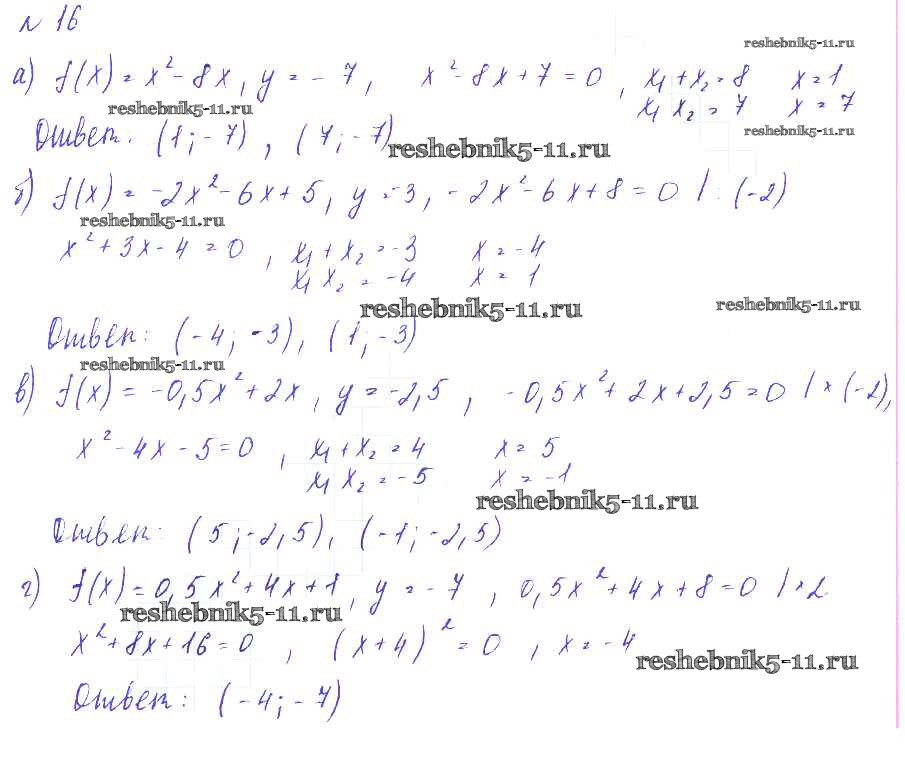 № 16
reshebnik5-11.ru
а) f(x) = x² - 8x, y = -7, x² - 8x + 7 = 0, x₁ + x₂ = 8 x = 1
x₁ x₂ = 7 x = 7
reshebnik5-11.ru
reshebnik5-11.ru
Ответ: (1; -7), (7; -7)
reshebnik5-11.ru
б) f(x) = -2x² - 6x + 5, y = -3, -2x² - 6x + 8 = 0 / : (-2)
reshebnik5-11.ru
x² + 3x - 4 = 0, x₁ + x₂ = -3 x = -4
x₁ x₂ = -4 x = 1
reshebnik5-11.ru
reshebnik5-11.ru
Ответ: (-4; -3), (1; -3)
reshebnik5-11.ru
в) f(x) = -0,5x² + 2x, y = -2,5, -0,5x² + 2x + 2,5 = 0 / × (-2),
x² - 4x - 5 = 0, x₁ + x₂ = 4 x = 5
x₁ x₂ = -5 x = -1
reshebnik5-11.ru
Ответ: (5; -2,5), (-1; -2,5)
г) f(x) = 0,5x² + 4x + 1, y = -7, 0,5x² + 4x + 8 = 0 / × 2
reshebnik5-11.ru
x² + 8x + 16 = 0, (x + 4)² = 0, x = -4
reshebnik5-11.ru
Ответ: (-4; -7)